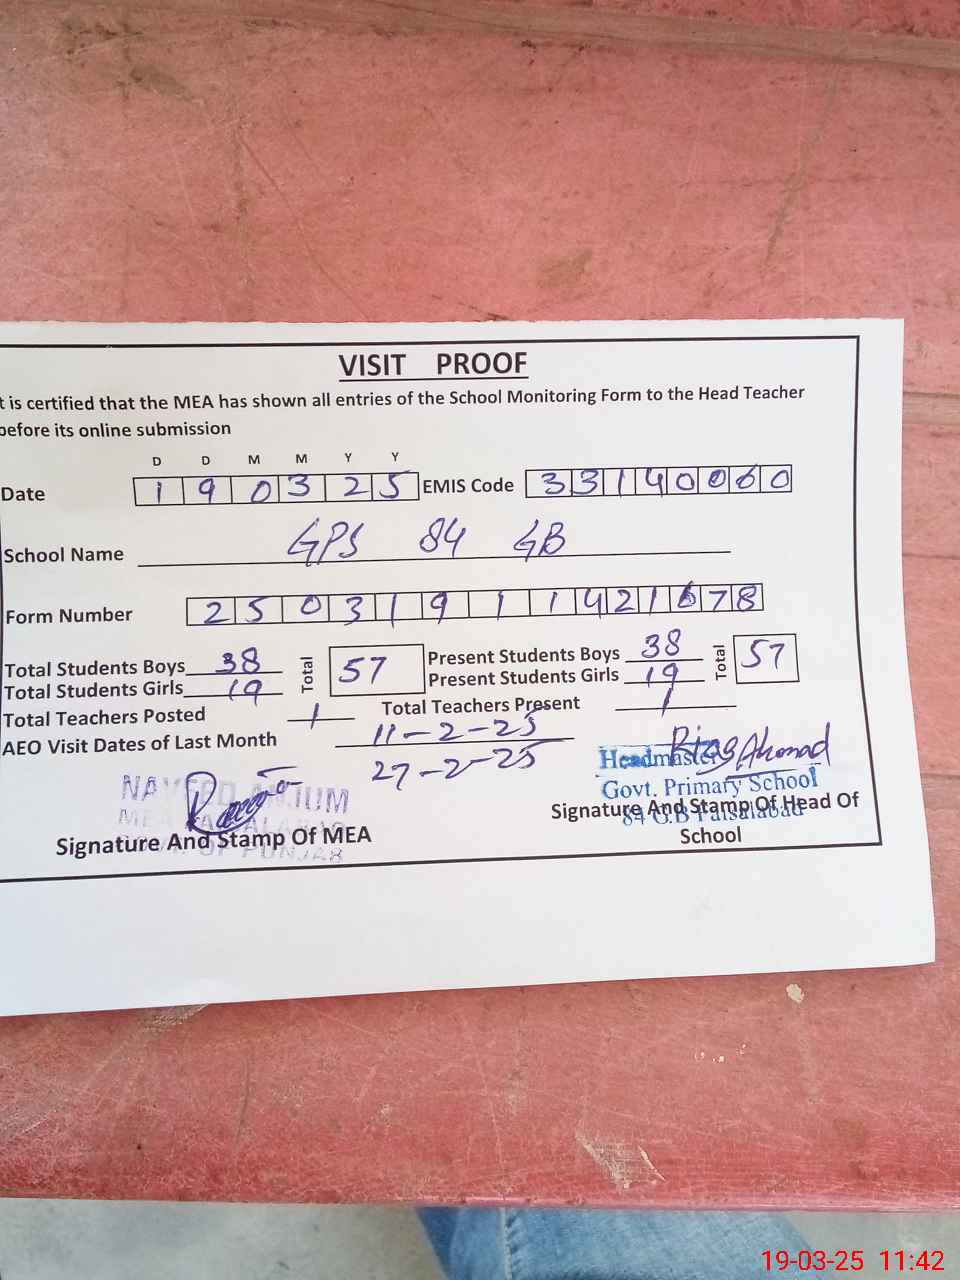 VISIT PROOF
t is certified that the MEA has shown all entries of the School Monitoring Form to the Head Teacher
before its online submission
D D M M Y Y
Date 1 9 0 3 2 5 EMIS Code 3 3 1 4 0 0 6 0
School Name GPS 84 GB
Form Number 2 5 0 3 1 9 1 1 4 2 1 6 7 8
Total Students Boys 38 Total 57 Present Students Boys 38 Total 57
Total Students Girls 19 Present Students Girls 19
Total Teachers Posted 1 Total Teachers Present 1
AEO Visit Dates of Last Month 11-2-25
27-2-25
Headmaster
Ahmad
Govt. Primary School
84 G.B Faisalabad
Signature And Stamp Of MEA
Signature And Stamp Of Head Of
School
GOVT. OF PUNJAB
19-03-25 11:42